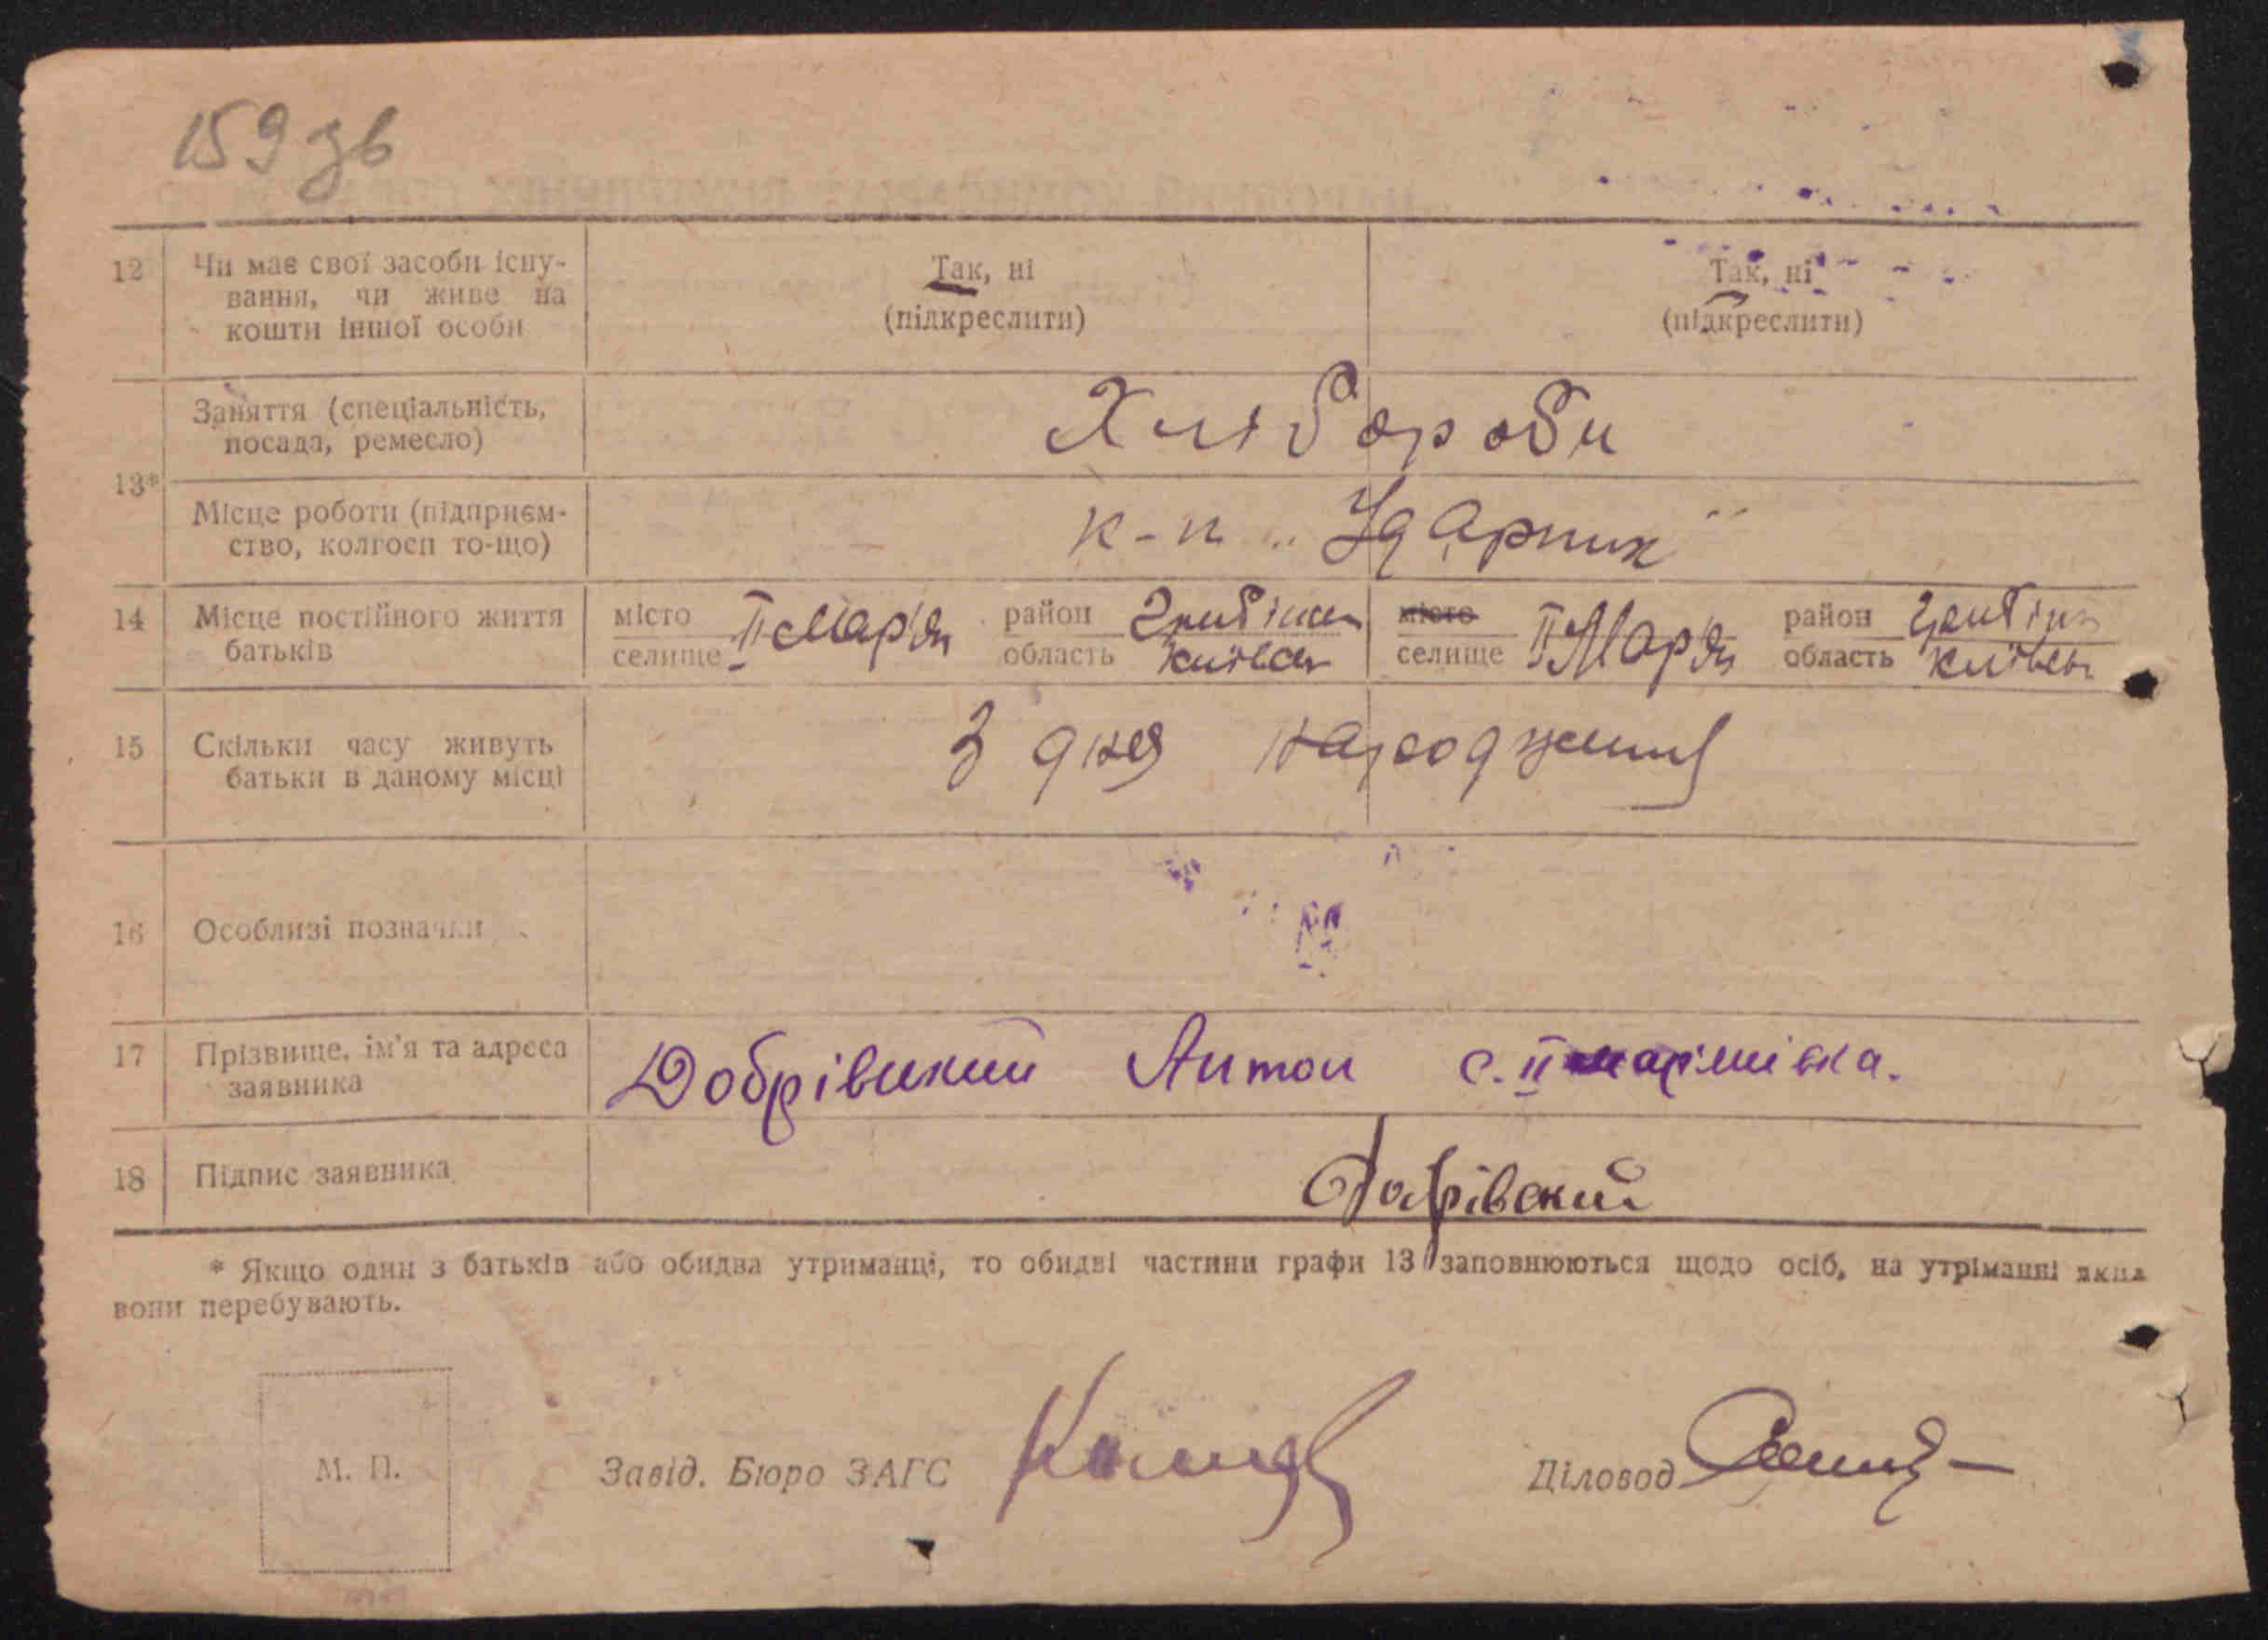 159 зв
12 Чи має свої засоби існу-
вання, чи живе на
кошти іншої особи
Так, ні
(підкреслити)
Так, ні
(підкреслити)
13*
Заняття (спеціальність,
посада, ремесло)
Хлібороби
Місце роботи (підприєм-
ство, колгосп то-що)
к-п „Ударник"
14 Місце постійного життя
батьків
місто
селище
ІІ Мар'ян
район
область
Київськ
місто
селище
ІІ Мар'ян
район
область
Київськ
15 Скільки часу живуть
батьки в даному місці
З дня народження
16 Особливі позначки
17 Прізвище, ім'я та адреса
заявника
Добрівський Антон с. ІІ Мар'янівка.
18 Підпис заявника
Добрівский
* Якщо один з батьків або обидва утриманці, то обидві частини графи 13 заповнюються щодо осіб, на утріманні яких
вони перебувають.
М. П.
Завід. Бюро ЗАГС
Діловод